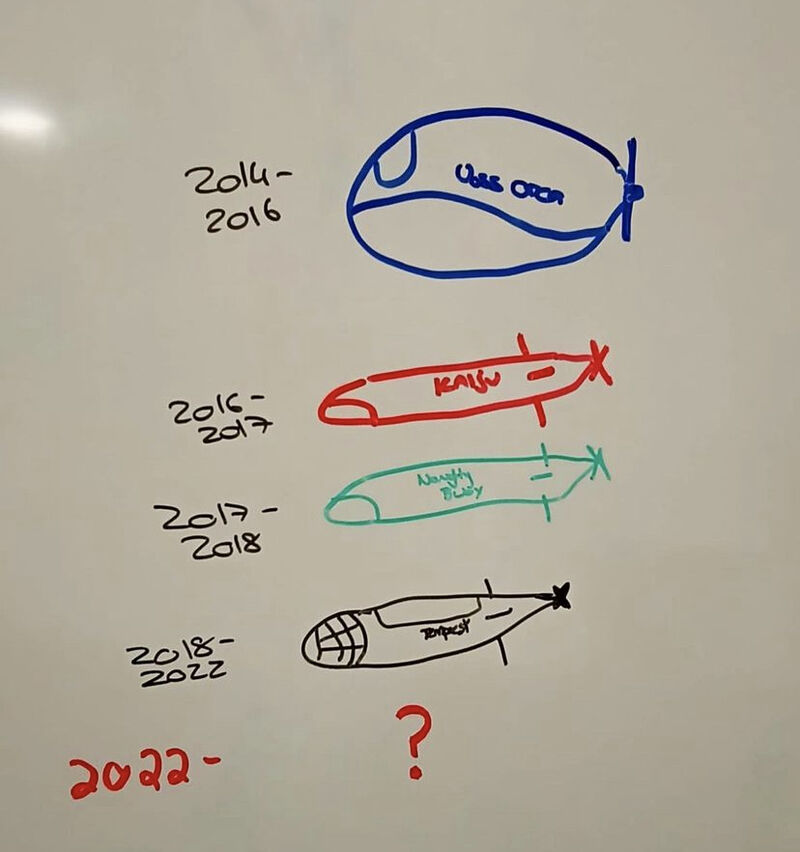 2014-
2016
UOSS ORCA
2016-
2017
KAIJU
2017-
2018
Naughty
Buoy
2018-
2022
Tempest
2022-
?